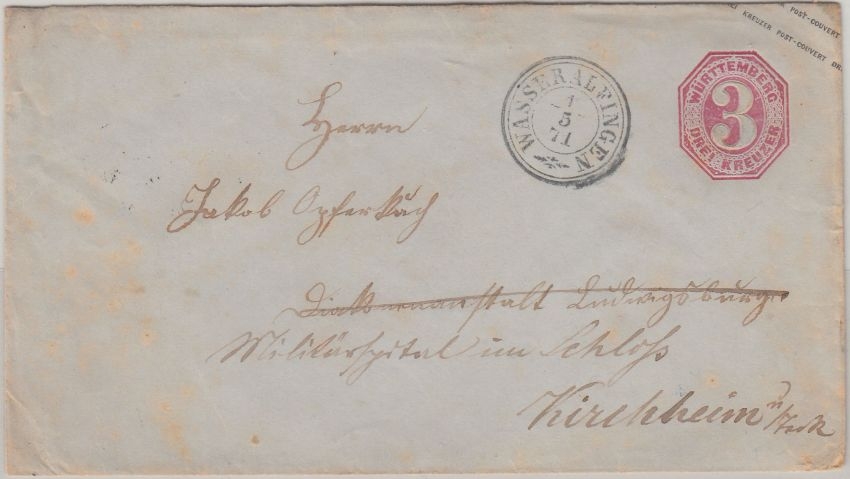 POST-COUVERT
EI KREUZER POST-COUVERT DR
WÜRTTEMBERG
3
DREI KREUZER
WASSERALFINGEN
1
5
71
Herrn
Jakob Opferkuch
Diakonenanstalt Ludwigsburg
Militärspital im Schloß
Kirchheim u/Teck